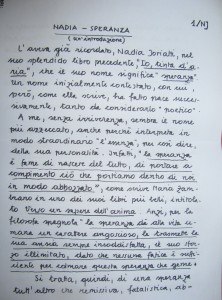 1/NJ
NADIA - SPERANZA
(un'introduzione)
L'aveva già ricordato, Nadia Joriati, nel
suo splendido libro precedente, "Io, tinta di a-
ria", che il suo nome significa "speranza":
un nome inizialmente contestato, con cui,
però, come ella scrive, ha fatto pace succes-
sivamente, tanto da considerarlo "poetico".
A me, senza irriverenza, sembra il nome
più azzeccato, anche perché interpreta in
modo straordinario l'essenza, per così dire,
della sua personalità. Infatti, "la speranza
è fame di nascere del tutto, di portare a
compimento ciò che portiamo dentro di noi
in modo abbozzato", come scrive Maria Zam-
brano in uno dei suoi libri più belli, intitola-
to Verso un sapere dell'anima. Anzi, per la
filosofa spagnola "la speranza di alta vita
un carattere angoscioso, le trasmette la
sua ansia sempre insoddisfatta, il suo sfor-
zo illimitato, dato che nessuna fatica è suffi-
ciente per colmare questa speranza che geme".
Si tratta, quindi, di una speranza
tutt'altro che remissiva, fatalistica, ab-